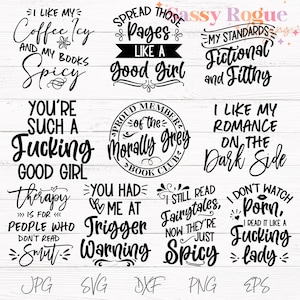 Sassy Rogue
I LIKE MY
Coffee Icy
AND MY BOOKS
Spicy
SPREAD THOSE
Pages
LIKE A
Good Girl
MY STANDARDS
Fictional
and Filthy
YOU'RE
SUCH A
Fucking
GOOD GIRL
PROUD MEMBER
of the
Morally Grey
BOOK CLUB
I LIKE MY
ROMANCE
ON THE
Dark Side
Therapy
IS FOR
PEOPLE WHO
DON'T READ
Smut
YOU HAD
ME AT
Trigger
Warning
I STILL READ
Fairytales,
NOW THEY'RE
JUST
Spicy
I DON'T WATCH
Porn,
I READ IT LIKE A
Fucking
lady
JPG SVG DXF PNG EPS